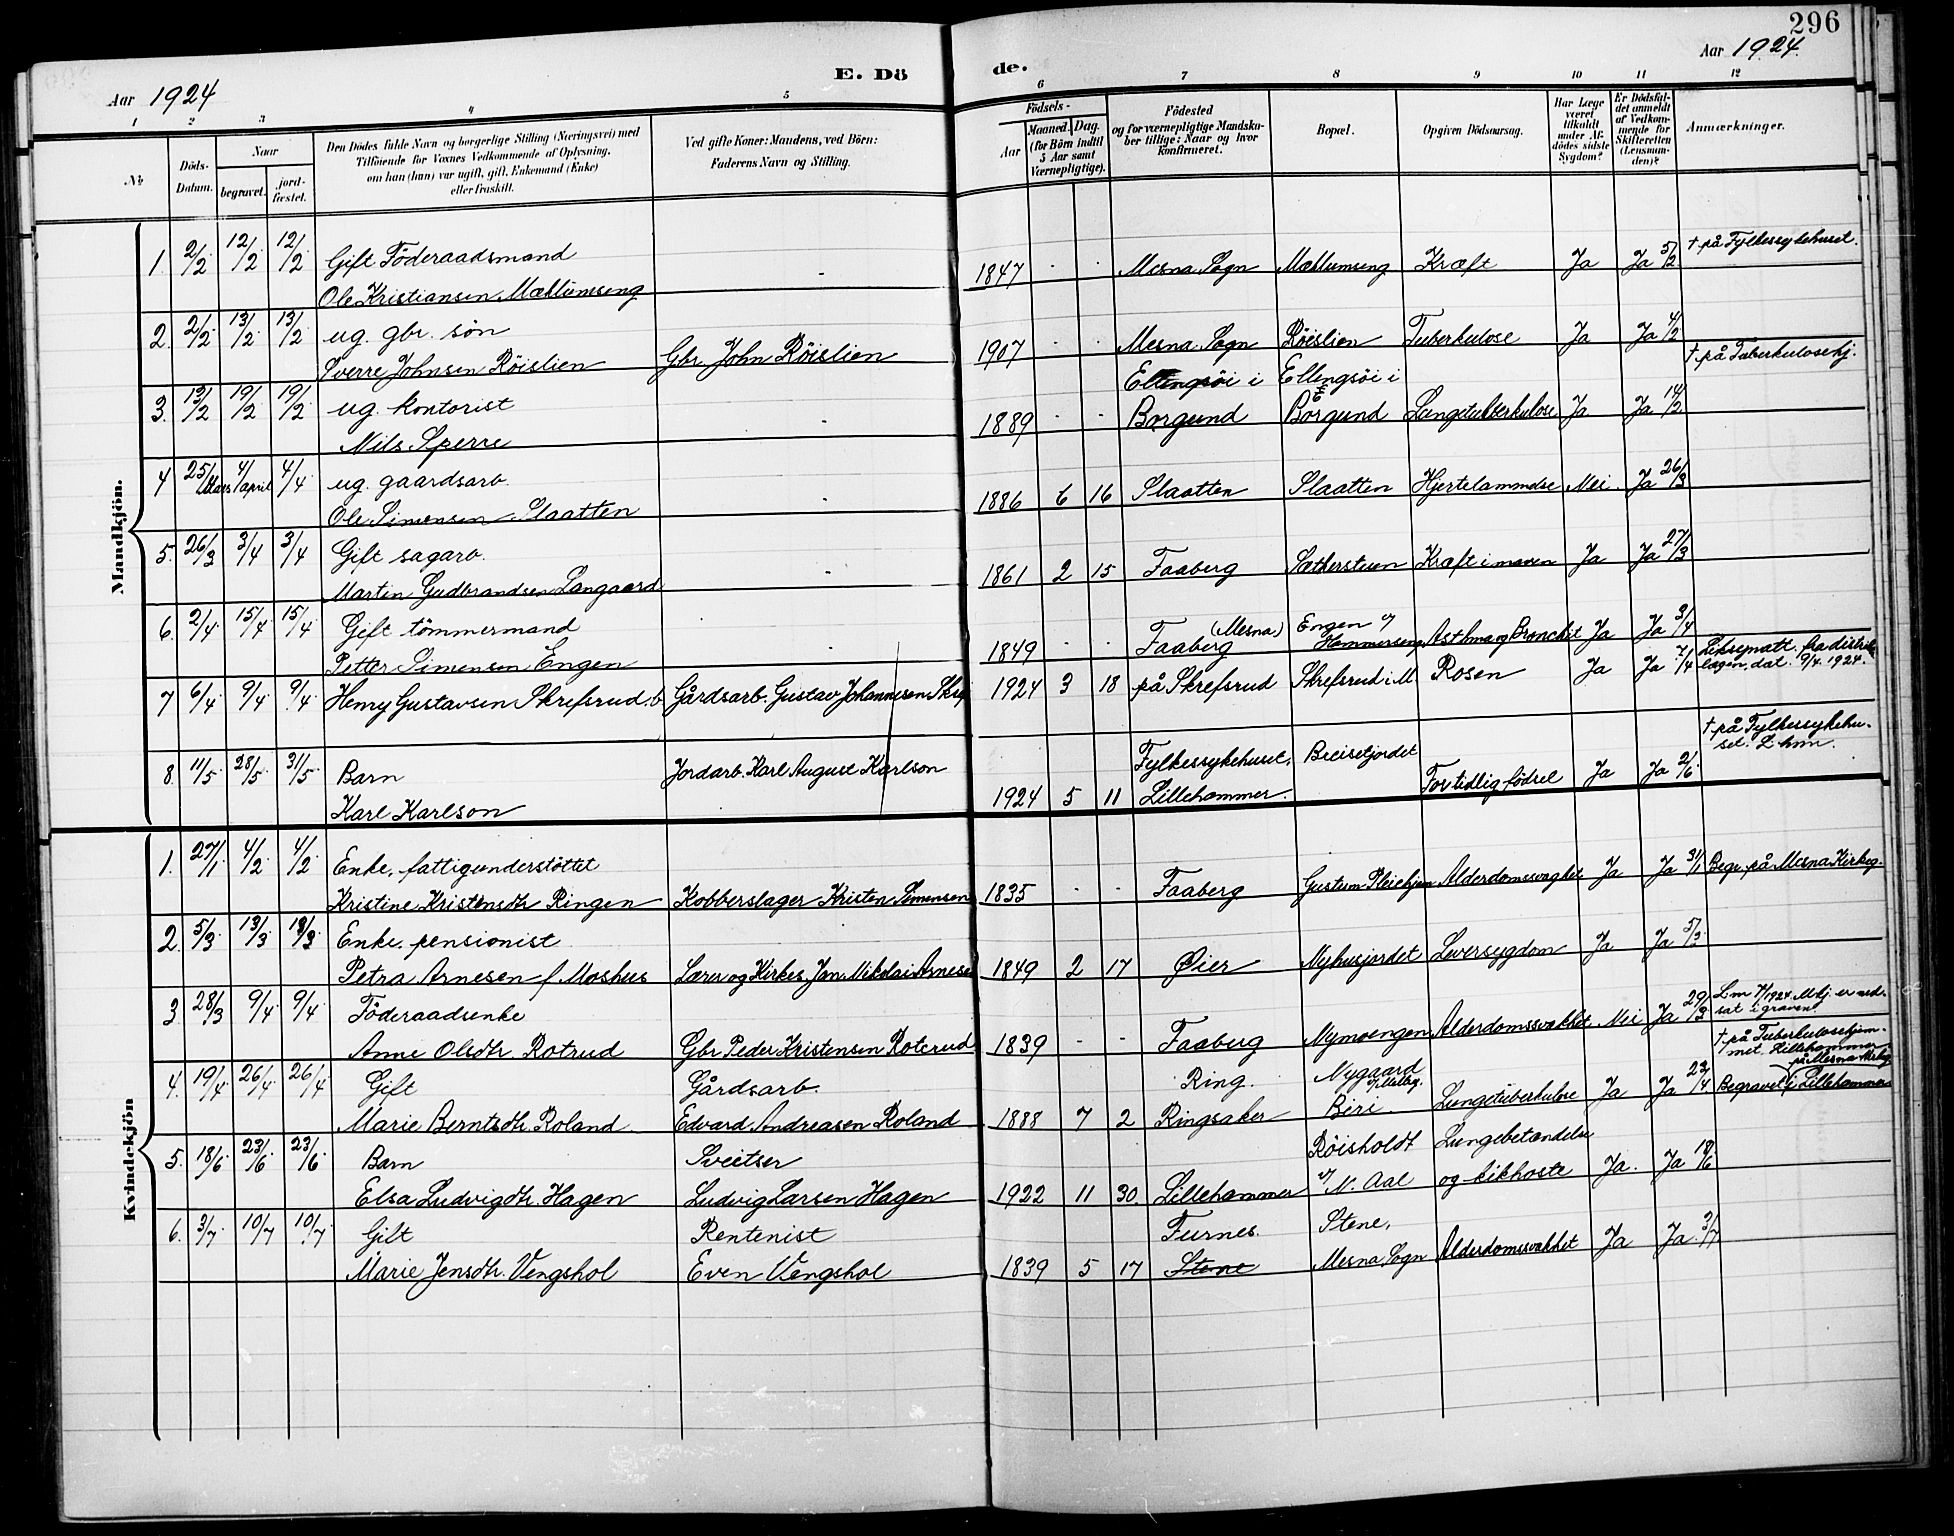 296
Aar 1924
E. Dö
de.
Aar 1924.
1 2 3 4 5 6 7 8 9 10 11 12
№
Döds-Datum.
Naar
begravet.
jord-fæstet.
Den Dödes fulde Navn og borgerlige Stilling (Næringsvei) med
Tilföiende for Voxnes Vedkommende af Oplysning,
om han (hun) var ugift, gift, Enkemand (Enke)
eller fraskilt.
Ved gifte Koner: Mandens, ved Börn:
Faderens Navn og Stilling.
Födsels-
Aar
Maaned. Dag.
(for Börn indtil
5 Aar samt
Værnepligtige).
Födested
og for værnepligtige Mandska-
ber tillige: Naar og hvor
konfirmeret.
Bopæl.
Opgiven Dödsaarsag.
Har Læge
været
tilkaldt
under Af-
dödes sidste
Sygdom?
Er Dödsfal-
det anmeldt
af Vedkom-
mende for
Skifteretten
(Lensman-
den)?
Anmærkninger.
Mandkjön.
1. 2/2 12/2 12/2 Gift Föderaadsmand
Ole Kristiansen Mæhlumseng
1847 Mesna Sogn Mæhlumseng Kræft Ja Ja 5/2 † på Fylkessykehuset.
2. 2/2 13/2 13/2 ug. gbr. sön
Sverre Johnsen Röislien Gbr. John Röislien
1907 Mesna Sogn Röislien Tuberkulose Ja Ja 4/2
† på Tuberkulosehj.
3. 13/2 19/2 19/2 ug. kontorist
Nils Sperre
Ellingsöi i Ellengsöi i
1889 Borgund Borgund Lungetuberkulose Ja Ja 14/2
4 25/Mars 4/april 4/4 ug. gaardsarb.
Ole Simensen Slaatten
1886 6 16 Slaatten Slaatten Hjertelammelse Nei. Ja 26/3
5. 26/3 3/4 3/4 Gift sagarb.
Martin Gudbrandsen Langaard
1861 2 15 Faaberg Sæthersteen Kræft i maven Ja Ja 27/3
6. 2/4 15/4 15/4 Gift tömmermand
Petter Simensen Engen
1849 (Mesna) Faaberg Engen Hammerseng Asthma og Bronchit Ja Ja 3/4
7 6/4 9/4 9/4 Henry Gustavsen Skrefsrud. b. Gårdsarb. Gustav Johannesen Skre
1924 3 18 på Skrefsrud Skrefsrud i M Rosen Ja Ja 7/4 fra distrikts-
lægen, dat. 9/4. 1924.
8. 11/5 28/5 31/5 Barn Jordarb. Karl August Karlson
Karl Karlson
1924 5 11 Fylkessykehuset, Lillehammer. Breisetjordet For tidlig födsel Ja Ja 2/6
† på Fylkessykehu-
set. L.hm.
Kvindekjön
1. 27/1 4/2 4/2 Enke, fattigunderstöttet
Kristine Kristensdtr. Ringen Kobberslager Kristen Simensen
1835 Faaberg Gustum Pleiehjem Alderdomssvaghet Ja Ja 31/1 Begr. på Mesna Kirkeg.
2. 5/3 13/3 13/3 Enke. pensionist
Petra Arnesen f. Moshus Lærer og Kirkes. Jan Nikolai Arnesen
1849 2 17 Øier Nyhusjordet Leversygdom Ja Ja 5/3
3 28/3 9/4 9/4 Föderaadsenke
Anne Olsdtr. Rotrud Gbr Peder Kristensen Roterud
1839 Faaberg Nymoengen Alderdomssvakhet Nei Ja 29/3
sat i graven.
4. 19/4 26/4 26/4 Gift Gårdsarb.
Marie Berntsdtr. Roland. Edvard Andreasen Roland
1888 7 2 Ring. Ringsaker Nygaard Biri. Lungetuberkulose Ja Ja 22/4.
† på Tuberkulosehjem-
met. Lillehammer
på Mesna Kirkeg.
Begravet i Lillehammer
5. 18/6 23/6 23/6 Barn Sveitser
Elsa Ludvigdtr. Hagen Ludvig Larsen Hagen
1922 11 30. Lillehammer Röisholdt N. Aal Lungebetændelse
og kikhoste Ja. Ja 18/6
6. 3/7 10/7 10/7 Gift Rentenist
Marie Jensdtr. Vengshol Even Vengshol
1839 5 17 Furnes. Stene Stene,
Mesna Sogn Alderdomssvakhet Ja Ja. 3/7